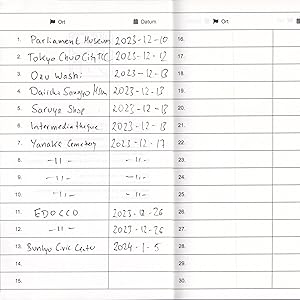 Ort Datum
1. Parliament Museum 2023-12-10
2. Tokyo Chuo City TIC 2023-12-12
3. Ozu Washi 2023-12-13
4. Daiichi Sankyo 2023-12-13
5. Shop 2023-12-13
6. Intermediatheque 2023-12-13
7. Yanaka Cemetery 2023-12-17
8. -11- -11-
9. -11- -11-
10. -11- -11-
11. EDOCCO 2023-12-26
12. -11- 2023-12-26
13. Bunkyo Civic Center 2024-1-5
14.
15.
Ort
16.
17.
18.
19.
20.
21.
22.
23.
24.
25.
26.
27.
28.
29.
30.